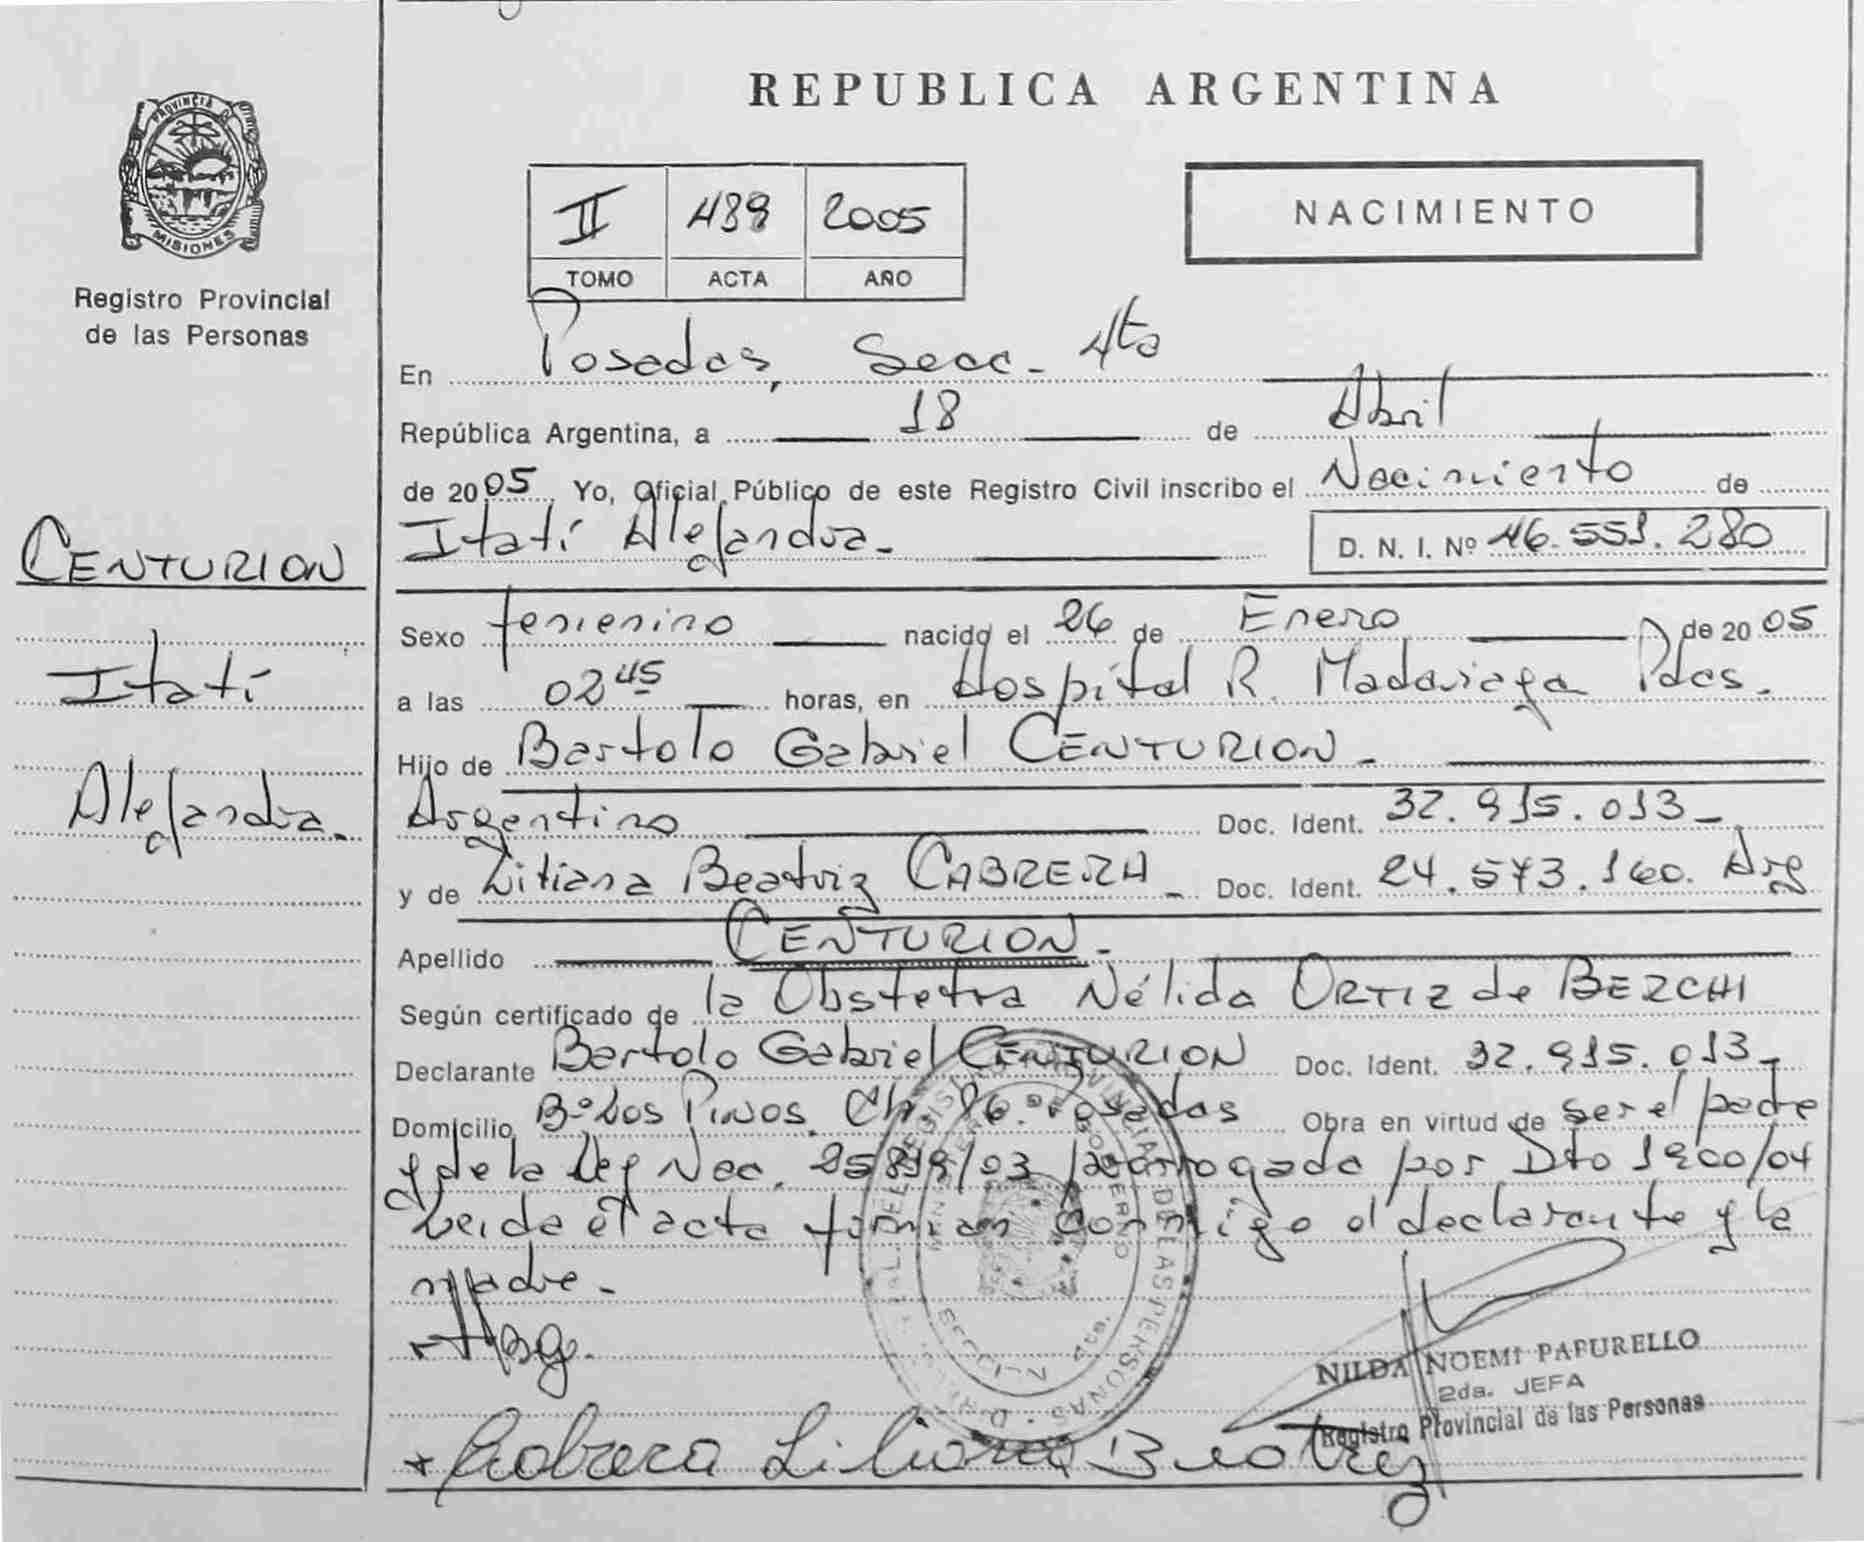 PROVINCIA DE
MISIONES
Registro Provincial
de las Personas
CENTURION
Itatí
Alejandra.
REPUBLICA ARGENTINA
II 489 2005
TOMO ACTA AÑO
NACIMIENTO
En Posadas, Secc. 4ta
República Argentina, a 18 de Abril
de 2005 Yo, Oficial Público de este Registro Civil inscribo el Nacimiento de
Itatí Alejandra. D. N. I. Nº 46.551.280
Sexo femenino nacido el 26 de Enero de 2005
a las 02 45 horas, en Hospital R. Madariaga Pdas.
Hijo de Bartolo Gabriel CENTURION.
Argentino Doc. Ident. 32.915.013
y de Liliana Beatriz CABRERA Doc. Ident. 24.573.160. Arg
Apellido CENTURION.
Según certificado de la Obstetra Nélida ORTIZ de BERCHI
Declarante Bartolo Gabriel CENTURION Doc. Ident. 32.915.013
Domicilio Bº Los Pinos Ch. 86. Posadas Obra en virtud de ser el padre
y de la Ley Nac. 25819/03 prorrogada por Dto 1900/04
Leida el acta firman conmigo el declarante y la
madre.
REGISTRO PROVINCIAL DE LAS PERSONAS
MINISTERIO DE GOBIERNO
SECCION 4ta.
NILDA NOEMI PAPURELLO
2da. JEFA
Registro Provincial de las Personas
Cabrera Liliana Beatriz